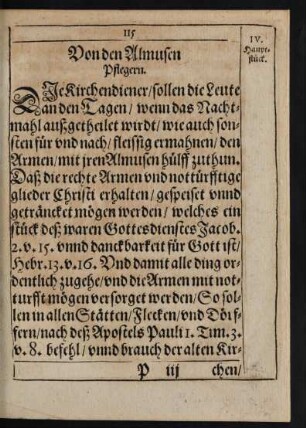 115
IV.
Haupt-
stück.
Von den Almusen
Pflegern.
DIe Kirchendiener / sollen die Leute
an den Tagen / wenn das Nacht-
mahl außgetheilet wirdt / wie auch son-
sten für vnd nach / fleissig ermahnen / den
Armen / mit jren Almusen hülff zuthun.
Daß die rechte Armen vnd notturfftige
glieder Christi erhalten / gespeiset vnnd
geträncket mögen werden / welches ein
stück deß waren Gottesdienstes Jacob.
2. v. 15. vnnd danckbarkeit für Gott ist /
Hebr. 13. v. 16. Vnd damit alle ding or-
dentlich zugehe / vnd die Armen mit not-
turfft mögen versorget werden / So sol-
len in allen Stätten / Flecken / vnd Dörf-
fern / nach deß Apostels Pauli 1. Tim. 3.
v. 8. befehl / vnnd brauch der alten Kir-
P iij chen /